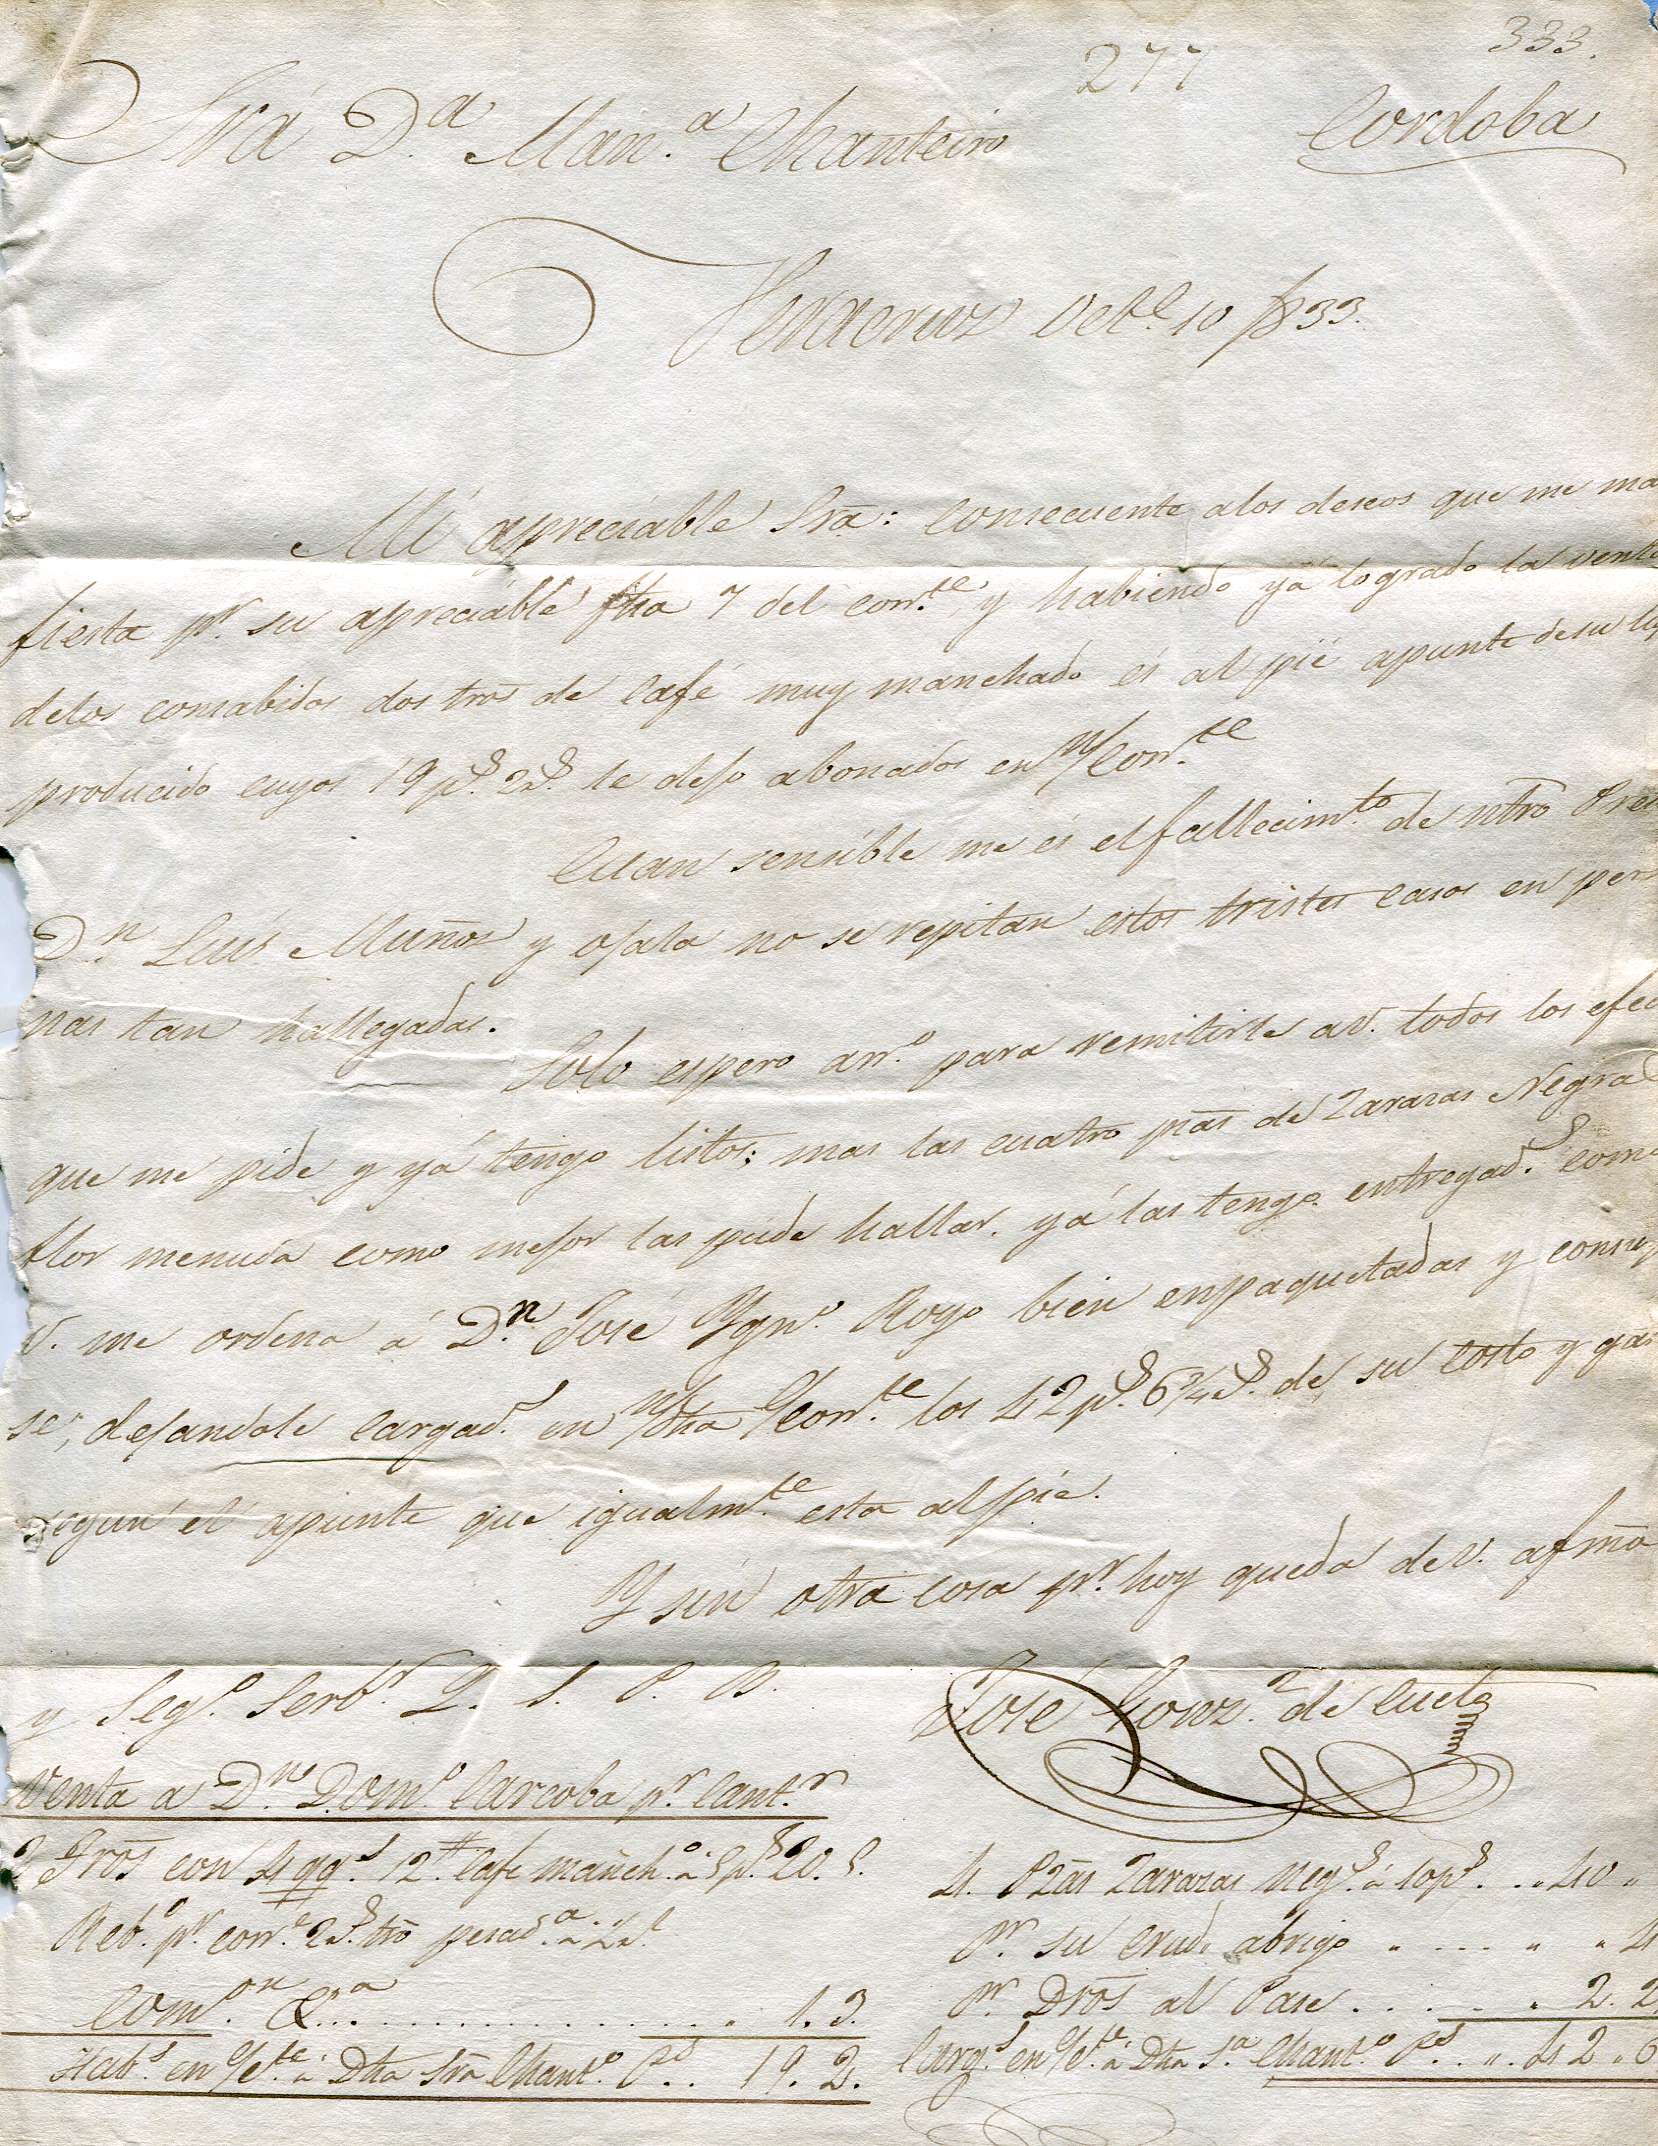 333.
277
Srã D.ª Man.ª Chanteiro
Cordoba
Veracruz Oct.e 10/833.
Mi apreciable Srã: consecuente a los deseos que me ma
fiesta p.r su apreciable fha 7 del corr.te y habiendo yá logrado la venta
delos consabidos dos tro͠s de Café muy manchado és al pié apunte desu
producido cuyos 19 p.s 2 r.s le dejo abonados en n/ Corr.te
Cuan sensíble me és el fallecim.to de ntro
D.n Luis Muños y ojala no se repitan estos tristes casos en per
nas tan hallegadas.
Solo espero arr.o para remitirle a V. todos los efec
que me pide y yá tengo listos; mas las cuatro pza͠s de Zarazas Negras
flor menuda como mejor las pude hallar. yá las tengo entregad.s como
V. me ordena á D.n José Ygn.o Royo bien enpaquetadas y
se, dejandole cargad.s en n/ dha C/ Corr.te los 42 p.s 6¾ r.s de su costo y gas
según él apunte que igualm.te esta al pié.
Y sin otra cosa p.r hoy queda de V. afmo͠
y Seg.o Serb.r Q. S. P. B.
José Gonz.z de Cueto
Venta a D.n Dom.o Carcoba p.r Cant.r
2 Tro͠s con 4 qq.s 12 # Cafe manch.o á 5 p.s 20. 5.
Reb.o p.r corr.e 2 r.s tro͠ pesad.a
Com.on &.ª . . . . . . . . . . . . 1. 3.
Hab.s en C/C.te á Dha Srã Chant.o P.s . . 19. 2.
4. Pza͠s Zarazas neg.s á 10 p.s . . „ 40 „
P.r su crud.o abrigo „ . . . . „ „ 4
P.r Dro͠s al Pase . . . . . „ 2. 2
Carg.s en C/C.te á Dha S.ª Chant.o P.s . . „ . 42 „ 6